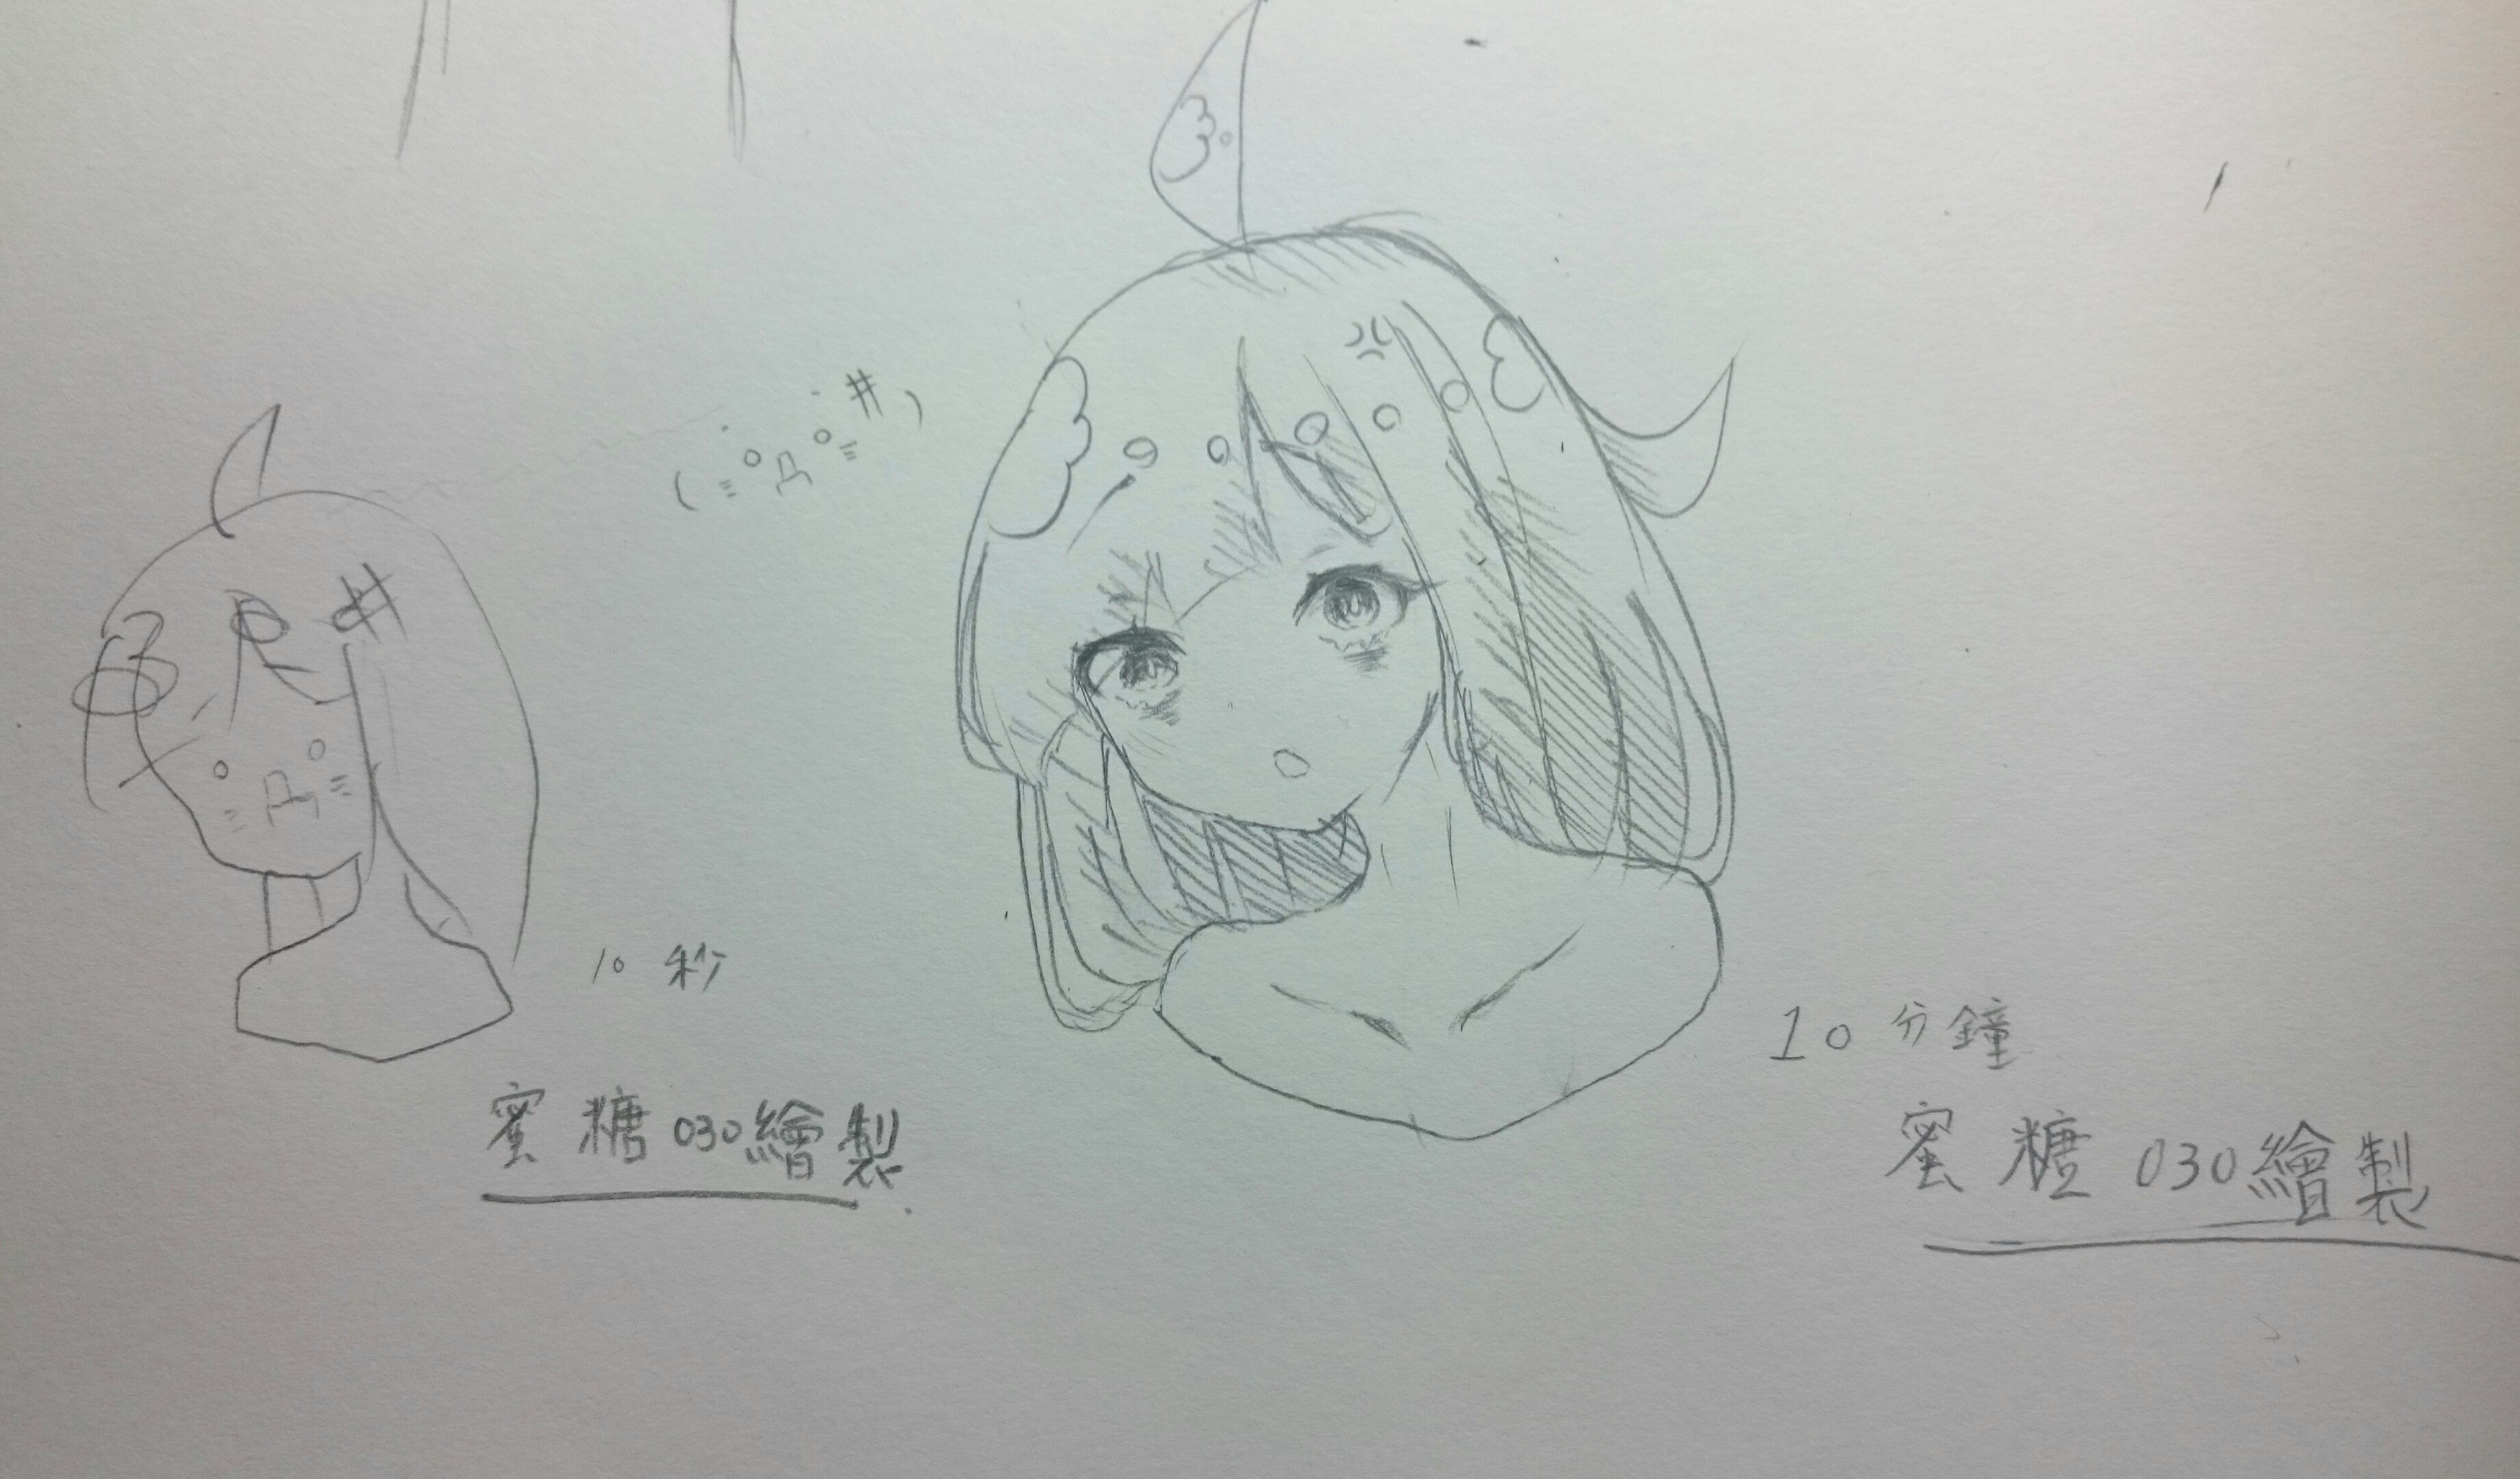 (=°Д°=#)
10 秒
蜜糖030繪製
10 分鐘
蜜糖030繪製